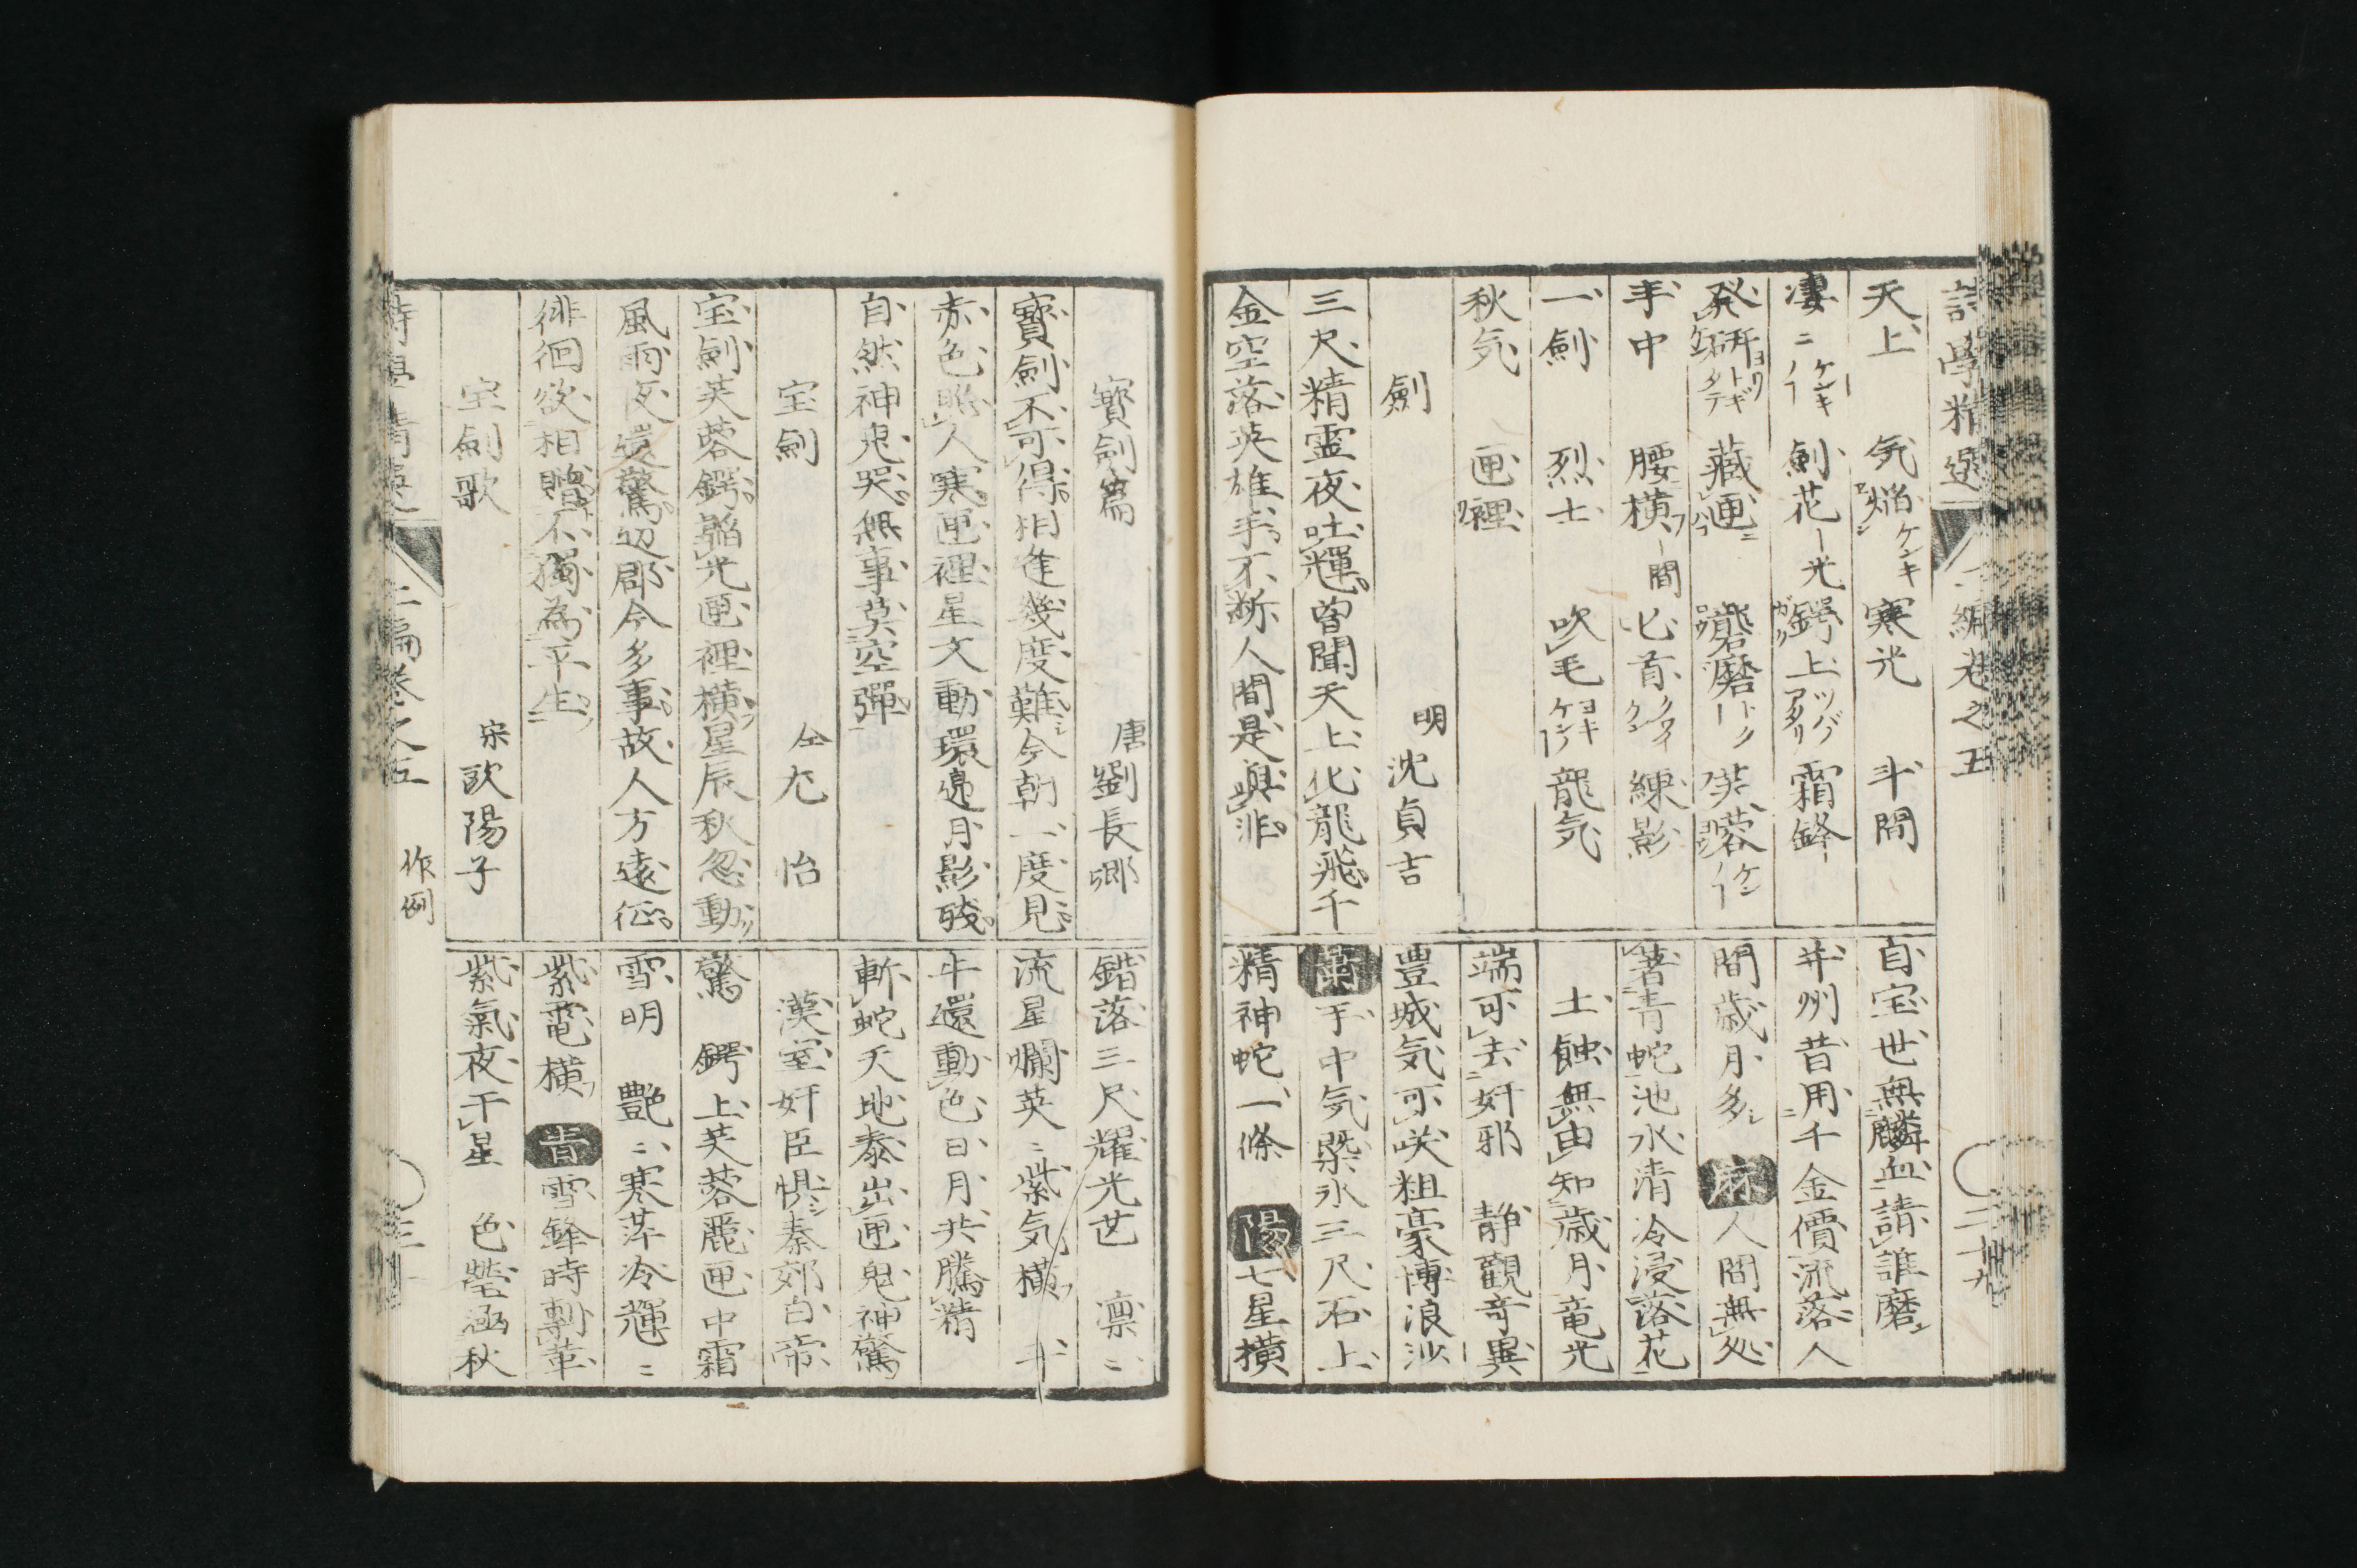 詩學精選 二編卷之五 二十九
天上 気焔ケンキ 寒光 斗間
凄ニ 剣花ー光 鍔上 霜鋒
発研 藏匣 礲磨 芙蓉
手中 腰横ー間 匕首 練影
一劍 烈士 吹毛 龍気
秋気 匣裡
劍 明 沈貞吉
三尺精霊夜吐輝曽聞天上化龍飛千
金空落英雄手不断人間是與非
自宝世無麟血請誰磨
并州昔用千金價流落人
間歳月多 麻 人間無処
著青蛇池水清冷浸落花
土蝕無由知歳月竜光
端可去奸邪 静觀竒異
豊城気可咲粗豪博浪沙
葉 手中気槩氷三尺石上
精神蛇一條 陽 七星横
寶劍篇 唐 劉長卿
寶劍不可得相逢幾度難今朝一度見
赤色照人寒匣裡星文動環邉月影殘
自然神鬼哭無事莫空彈
宝劍 仝 尤怡
宝劍芙蓉鍔韜光匣裡横星辰秋忽動
風雨夜還驚辺郡今多事故人方遠征
徘徊欲相贈不獨為平生
宝劍歌 宋 欧陽子
錯落三尺耀光芒 凛ニ
流星爛英ニ紫気横 斗
牛還動色日月共騰精
斬蛇天地泰出匣鬼神驚
漢室奸臣惧秦郊白帝
驚 鍔上芙蓉麗匣中霜
雪明 艶ニ寒芒冷輝ニ
紫電横 青 雪鋒時剸革
紫氣夜干星 色瑩涵秋
詩學精選 二編卷之五 作例 三十